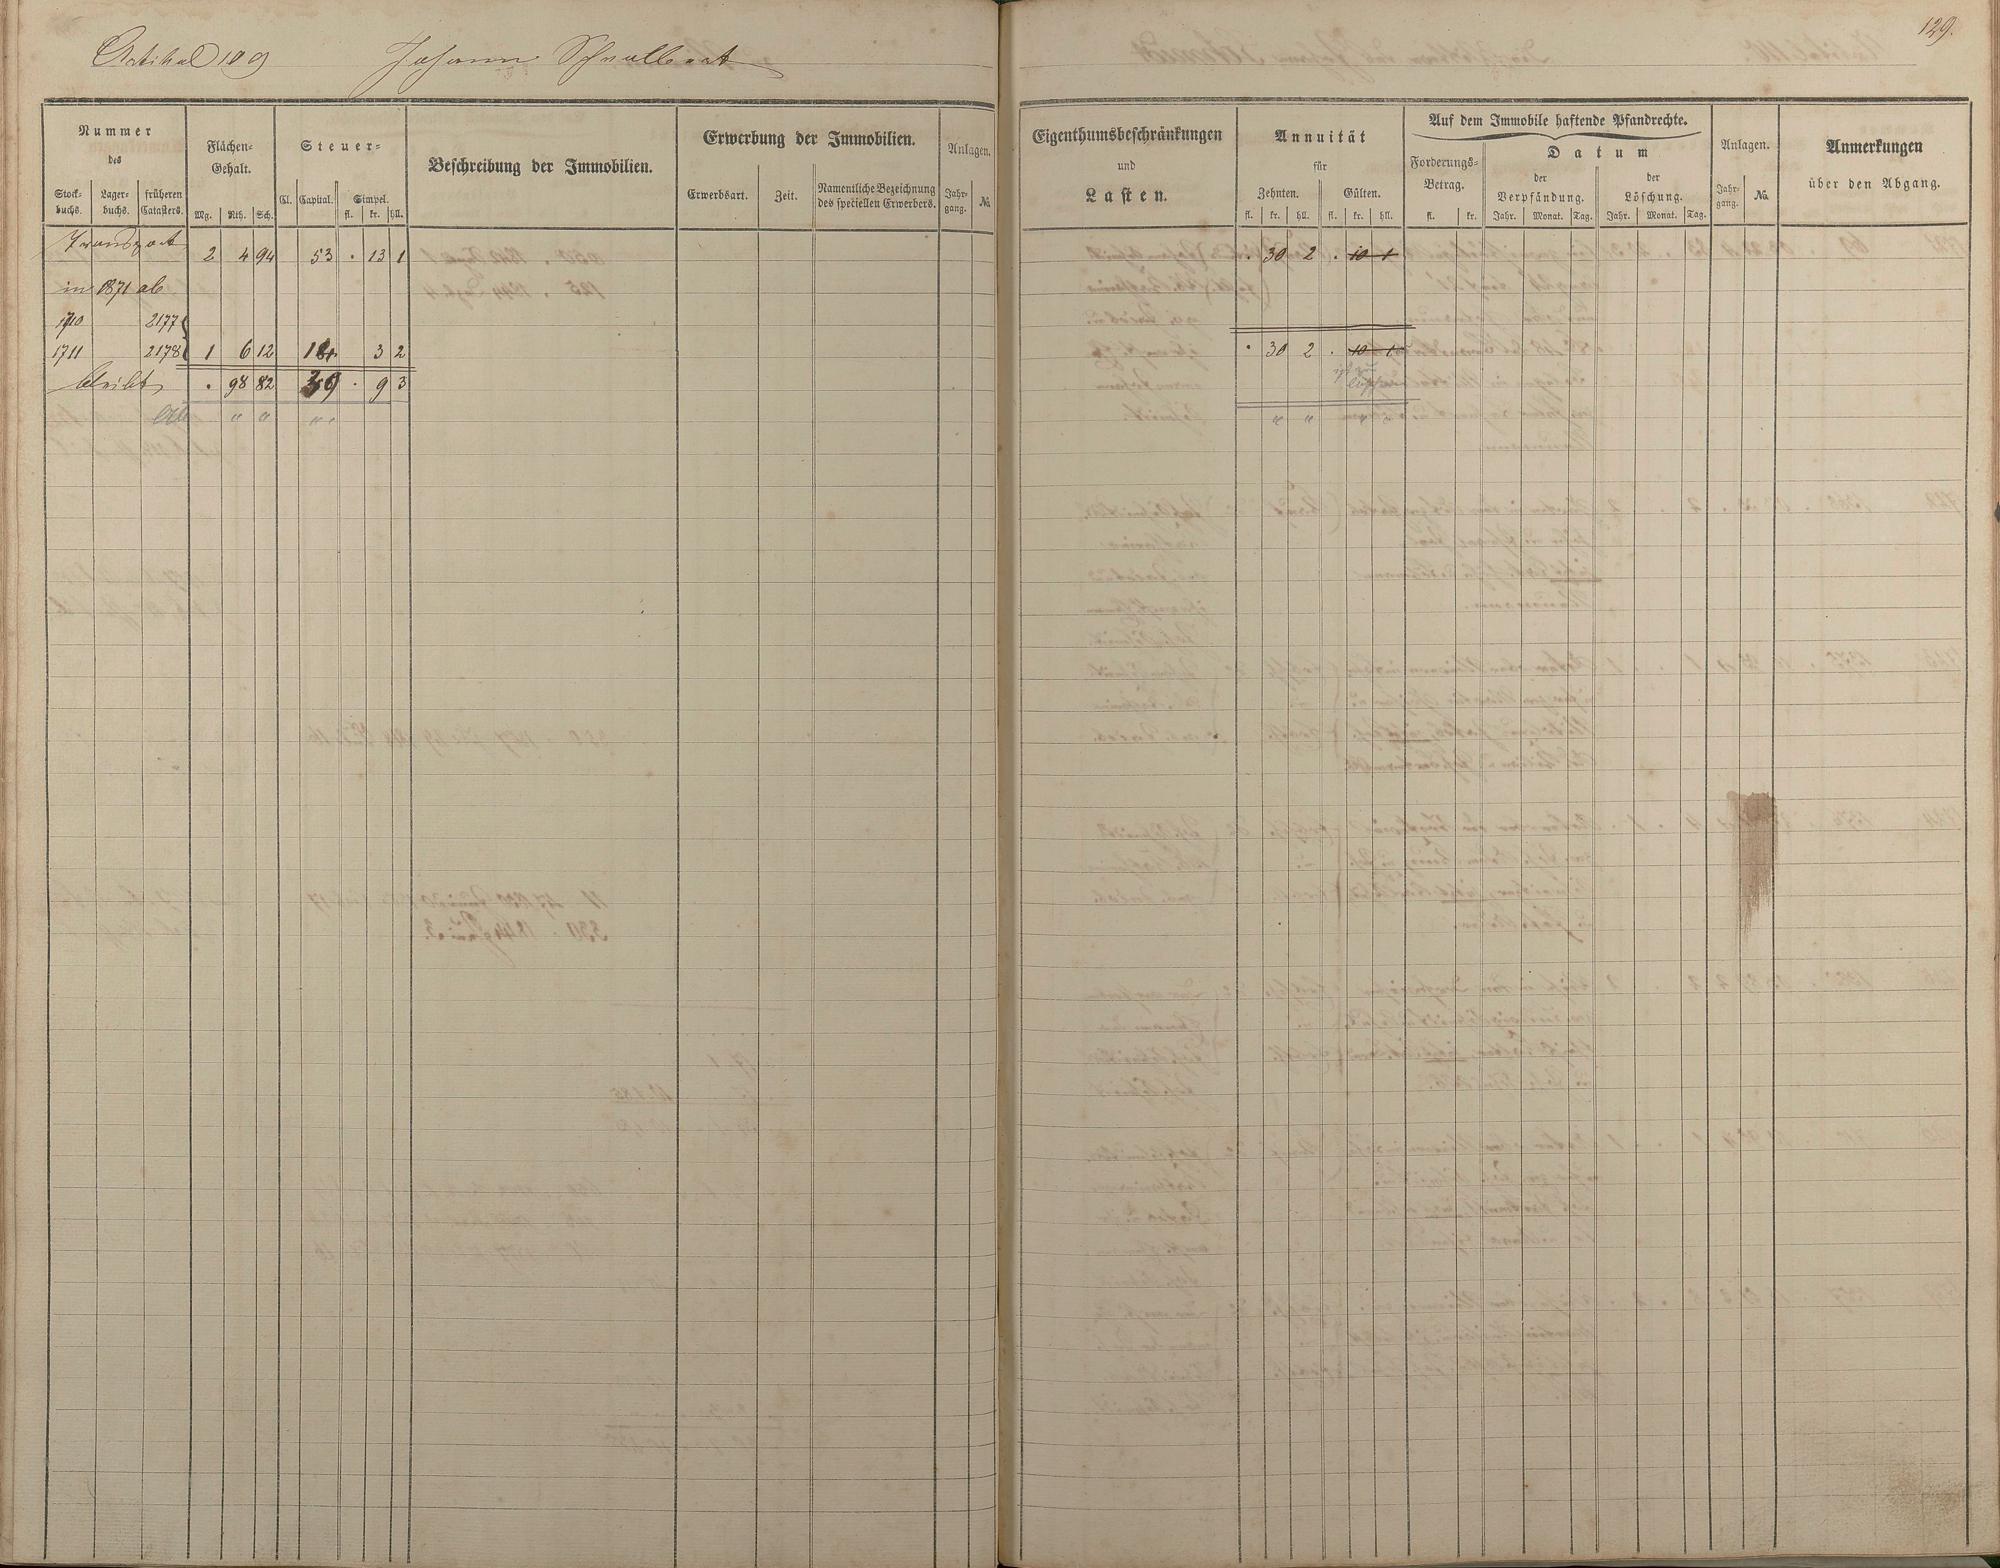 129.
Artikel 109 Johann Schnellbart
Nummer des
Stock-buchs. Lager-buchs. früheren Catasters.
Flächen-Gehalt.
Mg. Rth. Sch.
Steuer-
Cl. Capital. Simpel.
fl. kr. hll.
Beschreibung der Immobilien.
Erwerbung der Immobilien.
Erwerbsart. Zeit. Namentliche Bezeichnung des speciellen Erwerbers.
Anlagen.
Jahr-gang. No.
Eigenthumsbeschränkungen
und
Lasten.
Annuität
für
Zehnten. Gülten.
fl. kr. hll. fl. kr. hll.
Auf dem Immobile haftende Pfandrechte.
Forderungs-Betrag.
fl. kr.
Datum
der Verpfändung. der Löschung.
Jahr. Monat. Tag. Jahr. Monat. Tag.
Anlagen.
Jahr-gang. No.
Anmerkungen
über den Abgang.
Transport 2 4 94 53 . 13 1 . 30 2 . 10 1
in 1871 ab
1710 2177
1711 2178 1 6 12 3 2 . 30 2 . 10 1
bleibt . 98 82 39 . 9 3
" " " " " " "